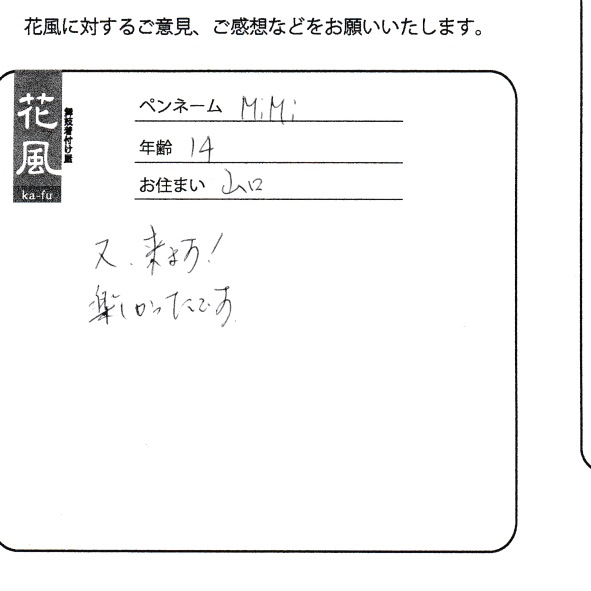 花風に対するご意見、ご感想などをお願いいたします。
花風
舞妓着付け屋
ka-fu
ペンネーム MiMi
年齢 14
お住まい 山口
又、来ます!
楽しかったです